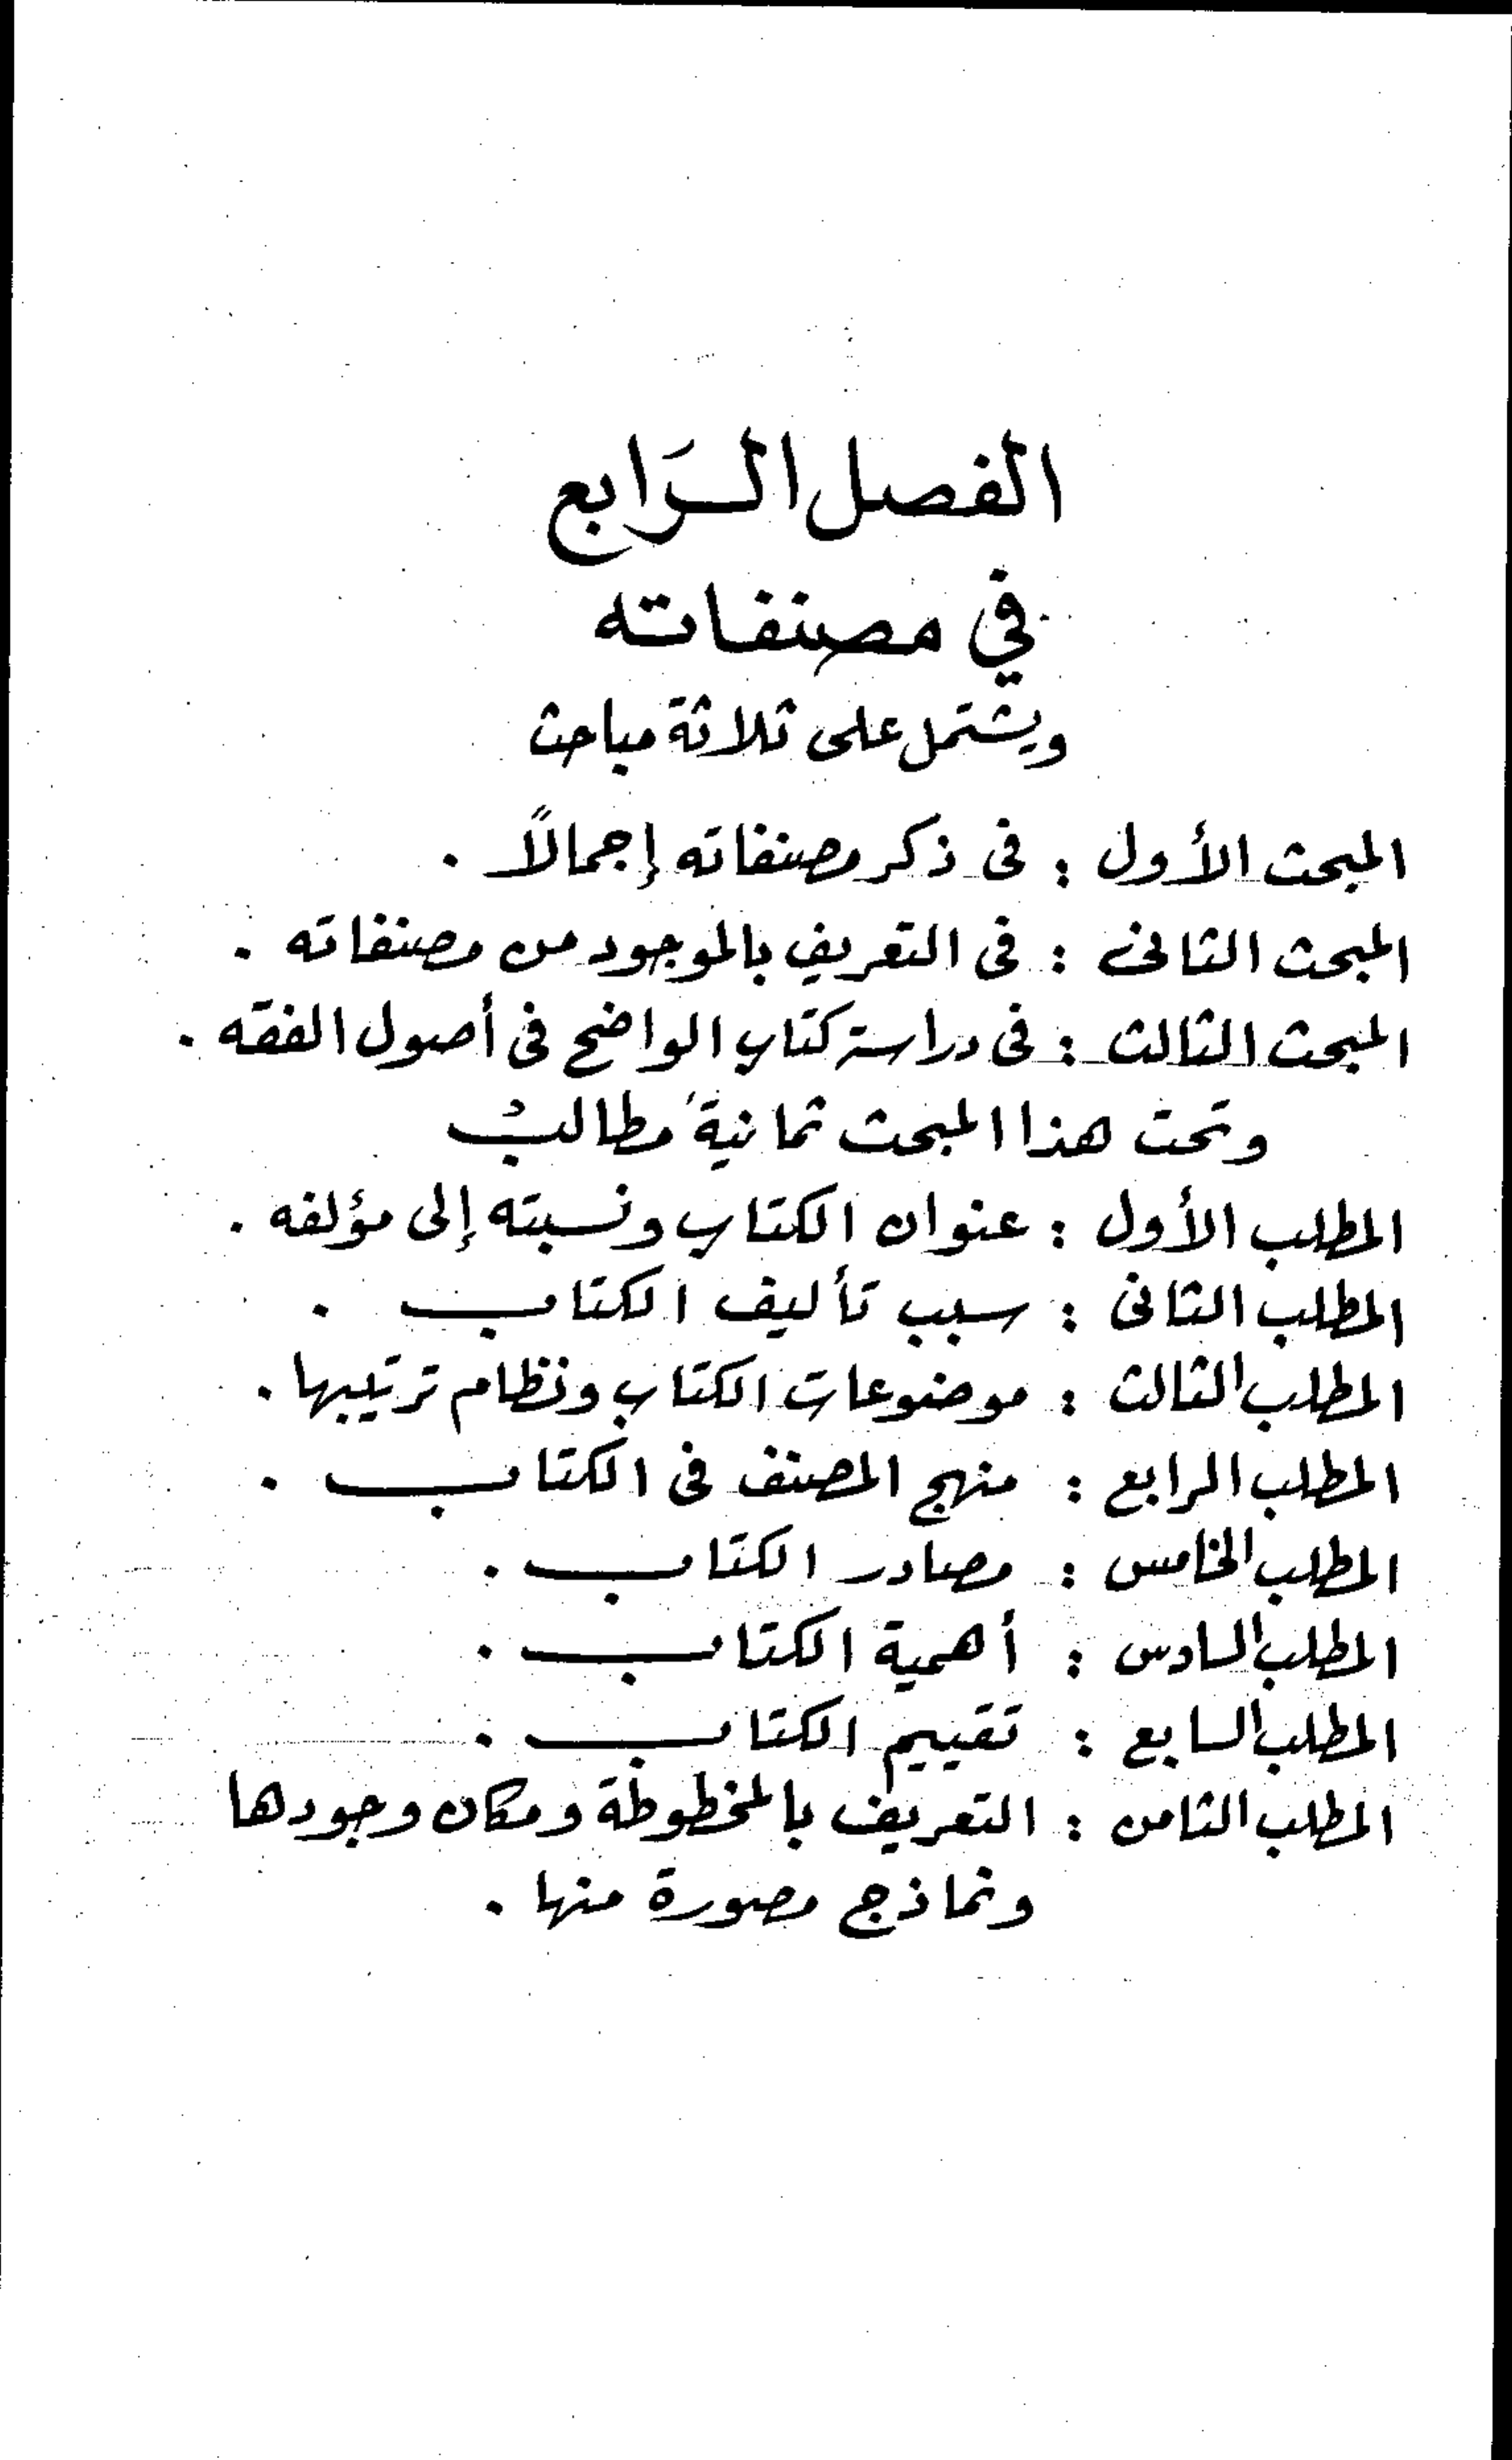 الفصل الرَابع
في مصنفاته
ويشتمل على ثلاثة مباحث
المبحث الأول : فى ذكر مصنفاته إجمالاً .
المبحث الثانى : فى التعريف بالموجود من مصنفاته .
المبحث الثالث : فى دراسة كتاب الواضح فى أصول الفقه .
وتحت هذا المبحث ثمانيةُ مطالبْ
المطلب الأول : عنوان الكتاب ونسبته إلى مؤلفه .
المطلب الثانى : سبب تأليف الكتاب .
المطلب الثالث : موضوعات الكتاب ونظام ترتيبها .
المطلب الرابع : منهج المصنف فى الكتاب .
المطلب الخامس : مصادر الكتاب .
المطلب السادس : أهمية الكتاب .
المطلب السابع : تقييم الكتاب .
المطلب الثامن : التعريف بالمخطوطة ومكان وجودها
ونماذج مصورة منها .